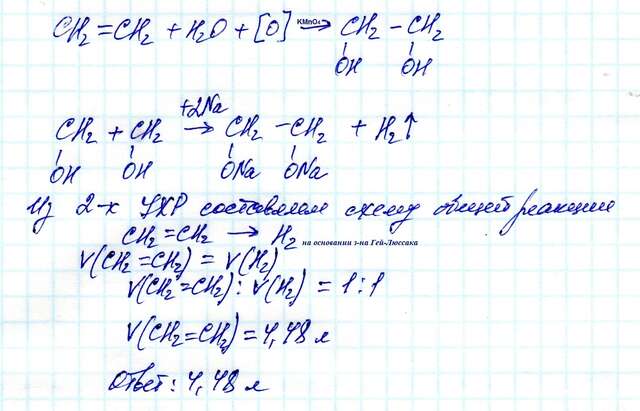 CH₂=CH₂ + H₂O + [O] KMnO₄ → CH₂ – CH₂
OH OH
+2Na
CH₂ + CH₂ → CH₂ – CH₂ + H₂↑
OH OH ONa ONa
Из 2-х УХР составляем схему общей реакции
CH₂=CH₂ → H₂ на основании з-на Гей-Люссака
V(CH₂=CH₂) = V(H₂)
V(CH₂=CH₂) : V(H₂) = 1:1
V(CH₂=CH₂) = 4,48 л
Ответ: 4,48 л